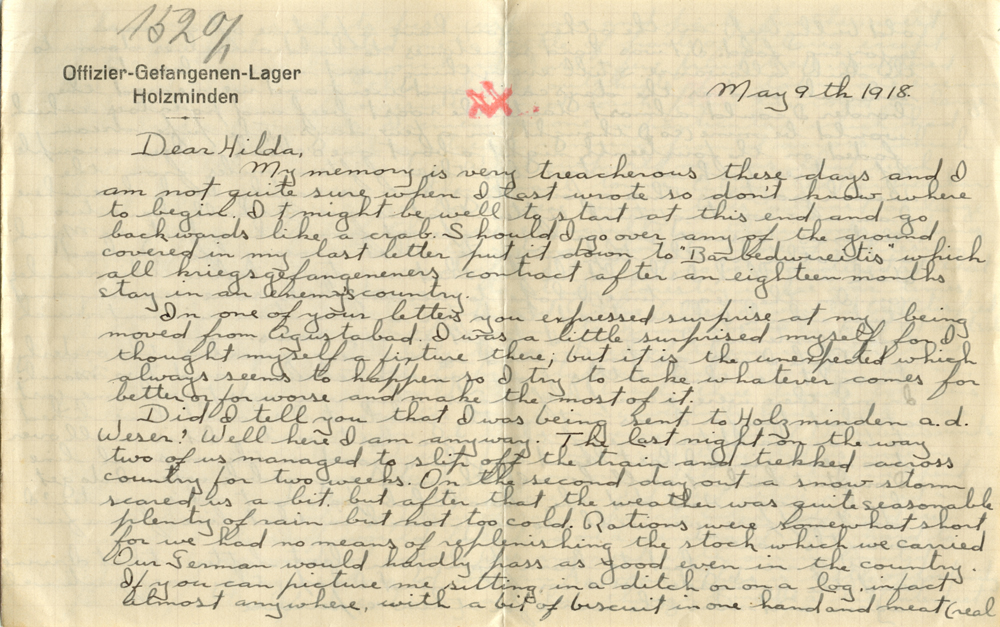 1520/1
Offizier-Gefangenen-Lager
Holzminden
May 9th 1918.
Dear Hilda,
My memory is very treacherous these days and I
am not quite sure when I last wrote so don't know where
to begin. It might be well to start at this end and go
backwards like a crab. Should I go over any of the ground
covered in my last letter put it down to "Barbedwireitis" which
all kriegsgefangeneners contract after an eighteen months
stay in an enemy's country.
In one of your letters you expressed surprise at my being
moved from Agustabad. I was a little surprised myself for I
thought myself a fixture there; but it is the unexpected which
always seems to happen so I try to take whatever comes for
better or for worse and make the most of it.
Did I tell you that I was being sent to Holzminden a.d.
Weser? Well here I am anyway. The last night on the way
two of us managed to slip off the train and trekked across
country for two weeks. On the second day out a snow storm
scared us a bit but after that the weather was quite seasonable
plenty of rain but not too cold. Rations were somewhat short
for we had no means of replenishing the stock which we carried
Our German would hardly pass as good even in the country.
If you can picture me sitting in a ditch or on a log, in fact
almost anywhere, with a bit of biscuit in one hand and meat (real